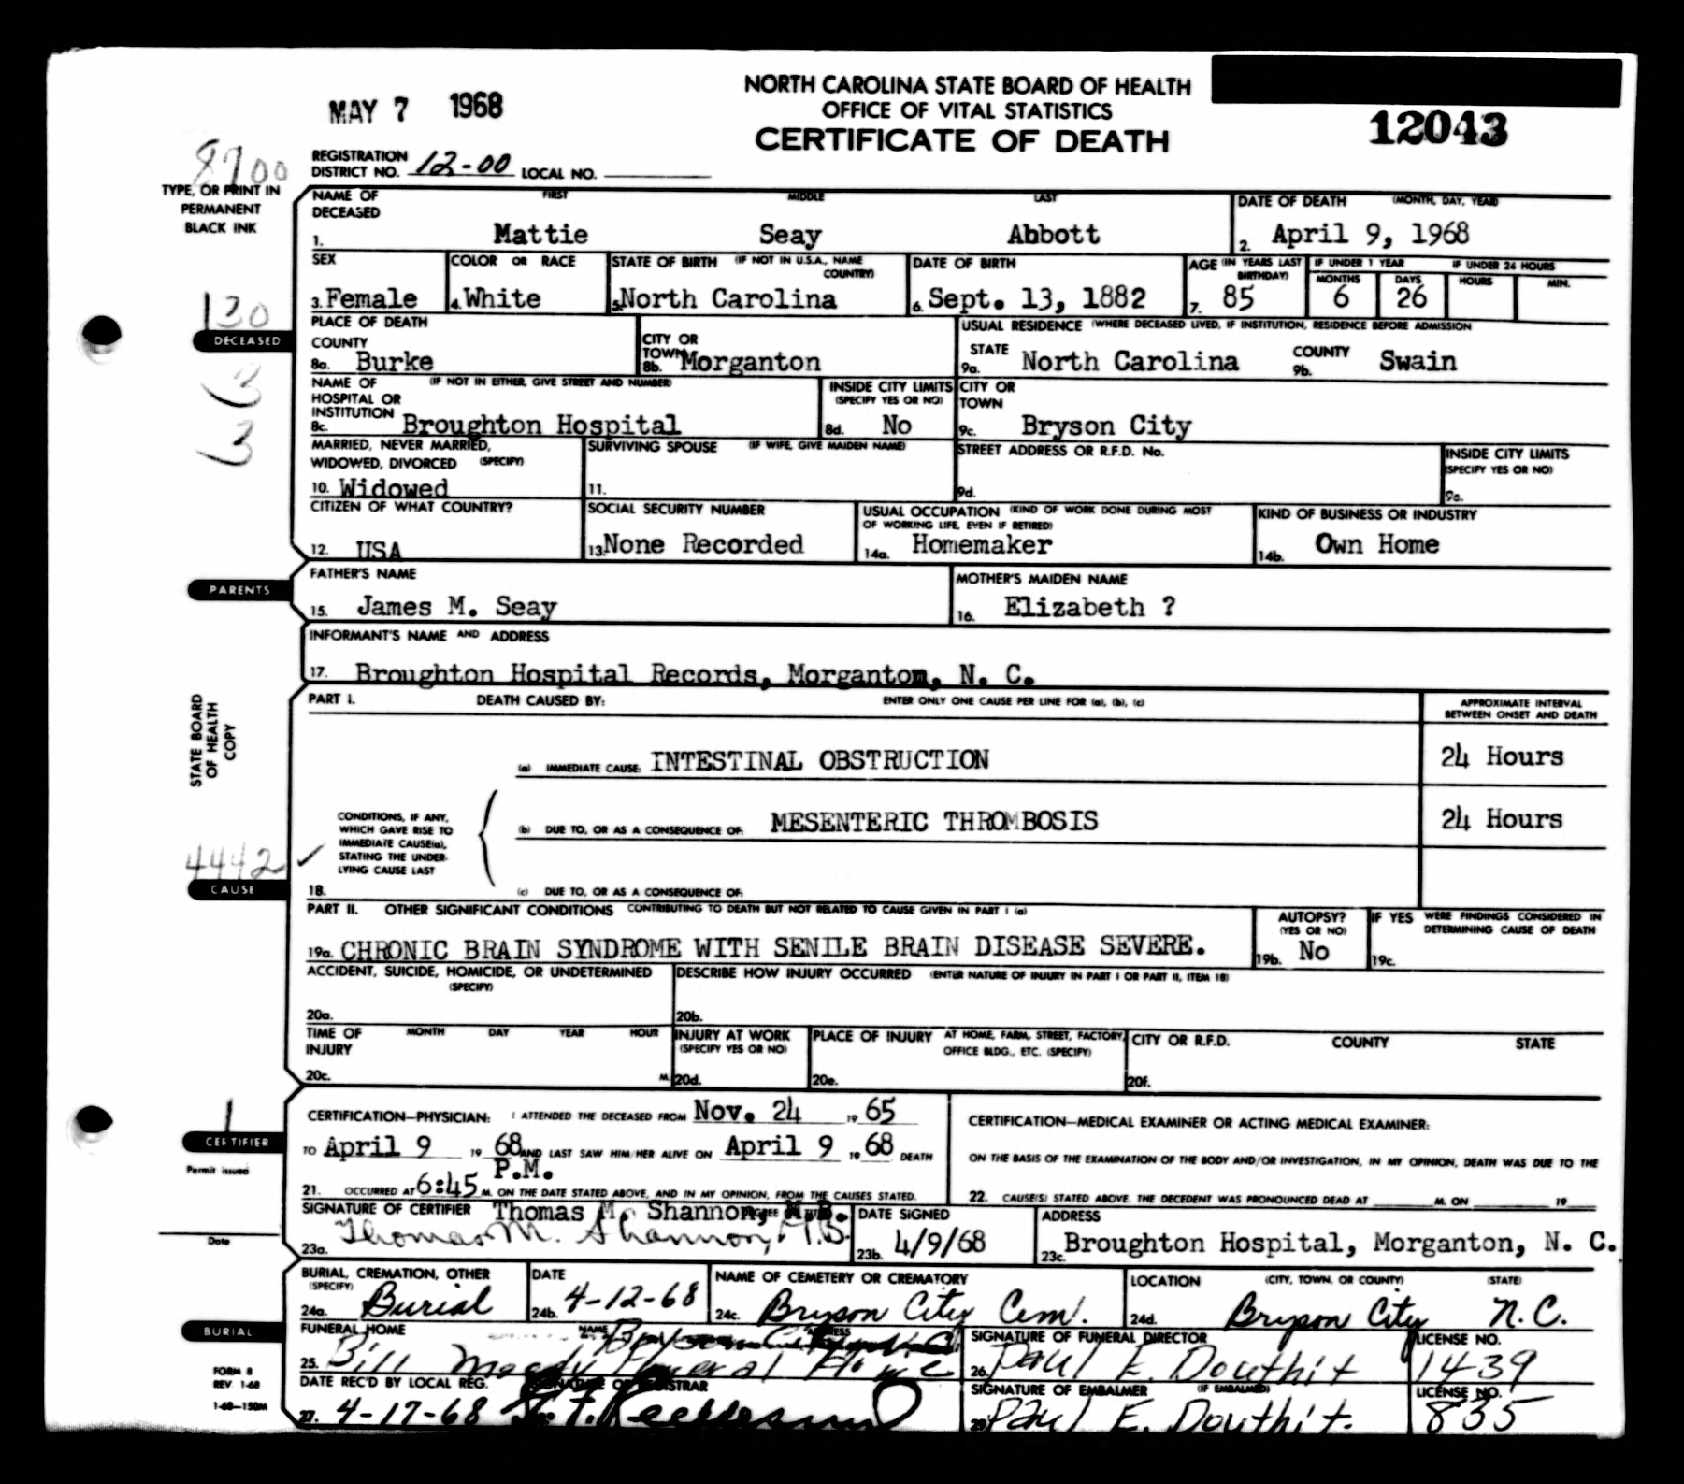 NORTH CAROLINA STATE BOARD OF HEALTH
MAY 7 1968
OFFICE OF VITAL STATISTICS
12043
CERTIFICATE OF DEATH
8700
REGISTRATION DISTRICT NO. 12-00 LOCAL NO.
TYPE, OR PRINT IN
PERMANENT
BLACK INK
NAME OF DECEASED FIRST MIDDLE LAST DATE OF DEATH (MONTH, DAY, YEAR)
1. Mattie Seay Abbott 2. April 9, 1968
SEX COLOR OR RACE STATE OF BIRTH (IF NOT IN U.S.A., NAME COUNTRY) DATE OF BIRTH AGE (IN YEARS LAST BIRTHDAY) IF UNDER 1 YEAR MONTHS DAYS IF UNDER 24 HOURS HOURS MIN.
3. Female 4. White 5. North Carolina 6. Sept. 13, 1882 7. 85 6 26
130
DECEASED
PLACE OF DEATH USUAL RESIDENCE (WHERE DECEASED LIVED, IF INSTITUTION, RESIDENCE BEFORE ADMISSION
COUNTY CITY OR TOWN STATE COUNTY
8a. Burke 8b. Morganton 9a. North Carolina 9b. Swain
NAME OF HOSPITAL OR INSTITUTION (IF NOT IN EITHER, GIVE STREET AND NUMBER) INSIDE CITY LIMITS (SPECIFY YES OR NO) CITY OR TOWN
8c. Broughton Hospital 8d. No 9c. Bryson City
MARRIED, NEVER MARRIED, WIDOWED, DIVORCED (SPECIFY) SURVIVING SPOUSE (IF WIFE, GIVE MAIDEN NAME) STREET ADDRESS OR R.F.D. No. INSIDE CITY LIMITS (SPECIFY YES OR NO)
10. Widowed 11. 9d. 9e.
CITIZEN OF WHAT COUNTRY? SOCIAL SECURITY NUMBER USUAL OCCUPATION (KIND OF WORK DONE DURING MOST OF WORKING LIFE, EVEN IF RETIRED) KIND OF BUSINESS OR INDUSTRY
12. USA 13. None Recorded 14a. Homemaker 14b. Own Home
PARENTS
FATHER'S NAME MOTHER'S MAIDEN NAME
15. James M. Seay 16. Elizabeth ?
INFORMANT'S NAME AND ADDRESS
17. Broughton Hospital Records, Morganton, N. C.
STATE BOARD
OF HEALTH
COPY
PART I. DEATH CAUSED BY: ENTER ONLY ONE CAUSE PER LINE FOR (a), (b), (c) APPROXIMATE INTERVAL BETWEEN ONSET AND DEATH
(a) IMMEDIATE CAUSE: INTESTINAL OBSTRUCTION 24 Hours
CONDITIONS, IF ANY,
WHICH GAVE RISE TO
IMMEDIATE CAUSE(a),
STATING THE UNDER-
LYING CAUSE LAST
(b) DUE TO, OR AS A CONSEQUENCE OF: MESENTERIC THROMBOSIS 24 Hours
4442 ✓
CAUSE
18. (c) DUE TO, OR AS A CONSEQUENCE OF:
PART II. OTHER SIGNIFICANT CONDITIONS CONTRIBUTING TO DEATH BUT NOT RELATED TO CAUSE GIVEN IN PART I (a) AUTOPSY? (YES OR NO) IF YES WERE FINDINGS CONSIDERED IN DETERMINING CAUSE OF DEATH
19a. CHRONIC BRAIN SYNDROME WITH SENILE BRAIN DISEASE SEVERE. 19b. No 19c.
ACCIDENT, SUICIDE, HOMICIDE, OR UNDETERMINED (SPECIFY) DESCRIBE HOW INJURY OCCURRED (ENTER NATURE OF INJURY IN PART I OR PART II, ITEM 18)
20a. 20b.
TIME OF INJURY MONTH DAY YEAR HOUR INJURY AT WORK (SPECIFY YES OR NO) PLACE OF INJURY AT HOME, FARM, STREET, FACTORY, OFFICE BLDG., ETC. (SPECIFY) CITY OR R.F.D. COUNTY STATE
20c. M. 20d. 20e. 20f.
1
CERTIFIER
Permit issued
Date
CERTIFICATION—PHYSICIAN: I ATTENDED THE DECEASED FROM Nov. 24 19 65
TO April 9 19 68 AND LAST SAW HIM/HER ALIVE ON April 9 19 68 DEATH
21. OCCURRED AT 6:45 P.M. M. ON THE DATE STATED ABOVE, AND IN MY OPINION, FROM THE CAUSES STATED.
CERTIFICATION—MEDICAL EXAMINER OR ACTING MEDICAL EXAMINER:
ON THE BASIS OF THE EXAMINATION OF THE BODY AND/OR INVESTIGATION, IN MY OPINION, DEATH WAS DUE TO THE
22. CAUSE(S) STATED ABOVE. THE DECEDENT WAS PRONOUNCED DEAD AT M. ON 19
SIGNATURE OF CERTIFIER Thomas M. Shannon, M.B. DATE SIGNED ADDRESS
23a. Thomas M. Shannon, M.B. 23b. 4/9/68 23c. Broughton Hospital, Morganton, N. C.
BURIAL, CREMATION, OTHER (SPECIFY) DATE NAME OF CEMETERY OR CREMATORY LOCATION (CITY, TOWN, OR COUNTY) (STATE)
24a. Burial 24b. 4-12-68 24c. Bryson City Cem. 24d. Bryson City N.C.
BURIAL
FUNERAL HOME NAME ADDRESS SIGNATURE OF FUNERAL DIRECTOR LICENSE NO.
25. Bill Moody Funeral Home 26. Paul E. Douthit 1439
FORM 8
REV. 1-68
1-68—150M
DATE REC'D BY LOCAL REG. SIGNATURE OF REGISTRAR SIGNATURE OF EMBALMER (IF EMBALMED) LICENSE NO.
27. 4-17-68 28. Paul E. Douthit. 835